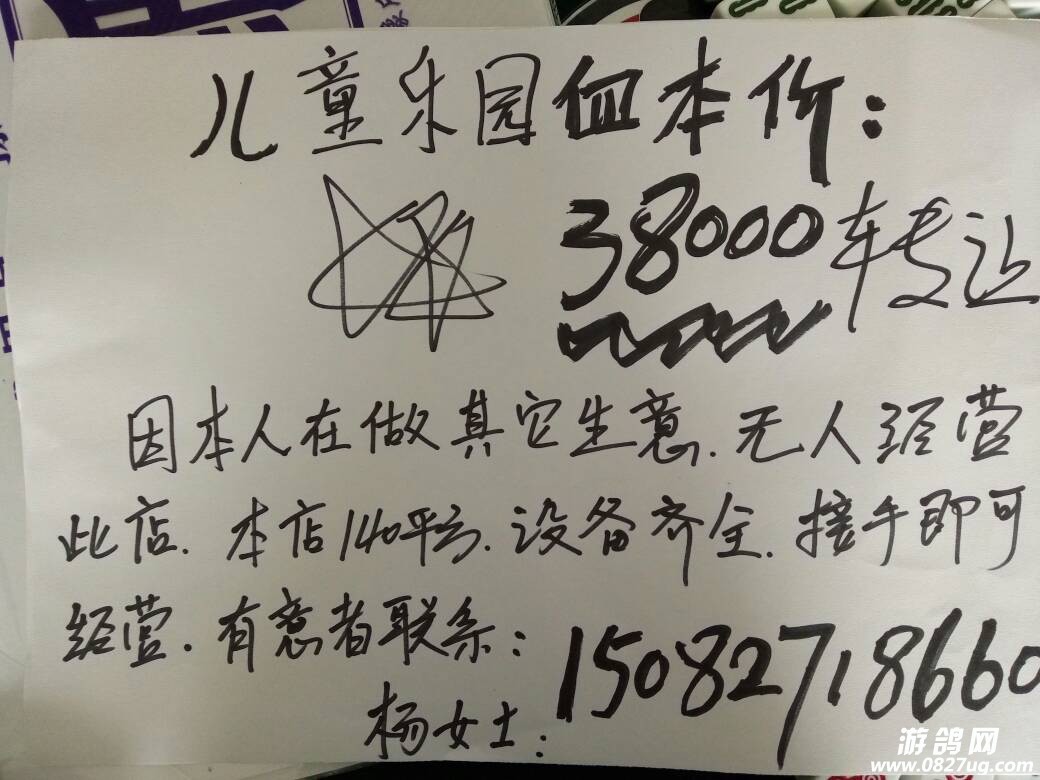 儿童乐园血本价：
38000转让
因本人在做其它生意.无人经营
此店.本店140平方.设备齐全.接手即可
经营.有意者联系：15082718660
杨女士：
游鸽网
www.0827ug.com